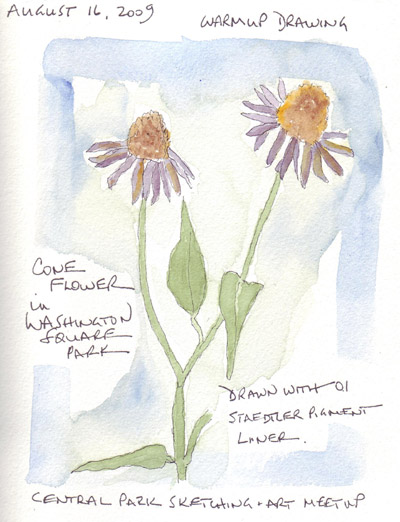 AUGUST 16, 2009
WARMUP DRAWING
CONE
FLOWER
in
WASHINGTON
SQUARE
PARK
DRAWN WITH 01
STAEDTLER PIGMENT
LINER.
CENTRAL PARK SKETCHING + ART MEETUP